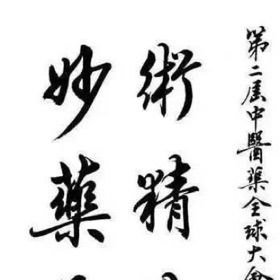 第二届中醫薬全球大會
術精
妙藥